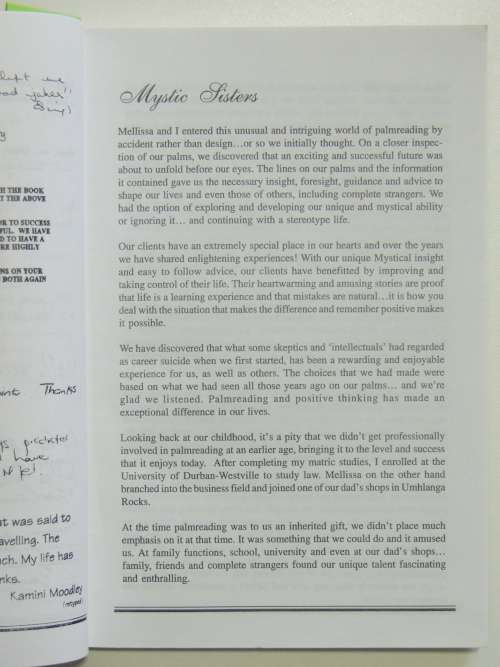 left me
"
Guys
y
H THE BOOK
T THE ABOVE
OR TO SUCCESS
FUL. WE HAVE
D TO HAVE A
RE HIGHLY
NS ON YOUR
BOTH AGAIN
Thanks
have
at was said to
avelling. The
nch. My life has
nks.
Kamini Moodley
Mystic Sisters
Mellissa and I entered this unusual and intriguing world of palmreading by
accident rather than design…or so we initially thought. On a closer inspec-
tion of our palms, we discovered that an exciting and successful future was
about to unfold before our eyes. The lines on our palms and the information
it contained gave us the necessary insight, foresight, guidance and advice to
shape our lives and even those of others, including complete strangers. We
had the option of exploring and developing our unique and mystical ability
or ignoring it… and continuing with a stereotype life.
Our clients have an extremely special place in our hearts and over the years
we have shared enlightening experiences! With our unique Mystical insight
and easy to follow advice, our clients have benefitted by improving and
taking control of their life. Their heartwarming and amusing stories are proof
that life is a learning experience and that mistakes are natural…it is how you
deal with the situation that makes the difference and remember positive makes
it possible.
We have discovered that what some skeptics and 'intellectuals' had regarded
as career suicide when we first started, has been a rewarding and enjoyable
experience for us, as well as others. The choices that we had made were
based on what we had seen all those years ago on our palms… and we're
glad we listened. Palmreading and positive thinking has made an
exceptional difference in our lives.
Looking back at our childhood, it's a pity that we didn't get professionally
involved in palmreading at an earlier age, bringing it to the level and success
that it enjoys today. After completing my matric studies, I enrolled at the
University of Durban-Westville to study law. Mellissa on the other hand
branched into the business field and joined one of our dad's shops in Umhlanga
Rocks.
At the time palmreading was to us an inherited gift, we didn't place much
emphasis on it at that time. It was something that we could do and it amused
us. At family functions, school, university and even at our dad's shops…
family, friends and complete strangers found our unique talent fascinating
and enthralling.